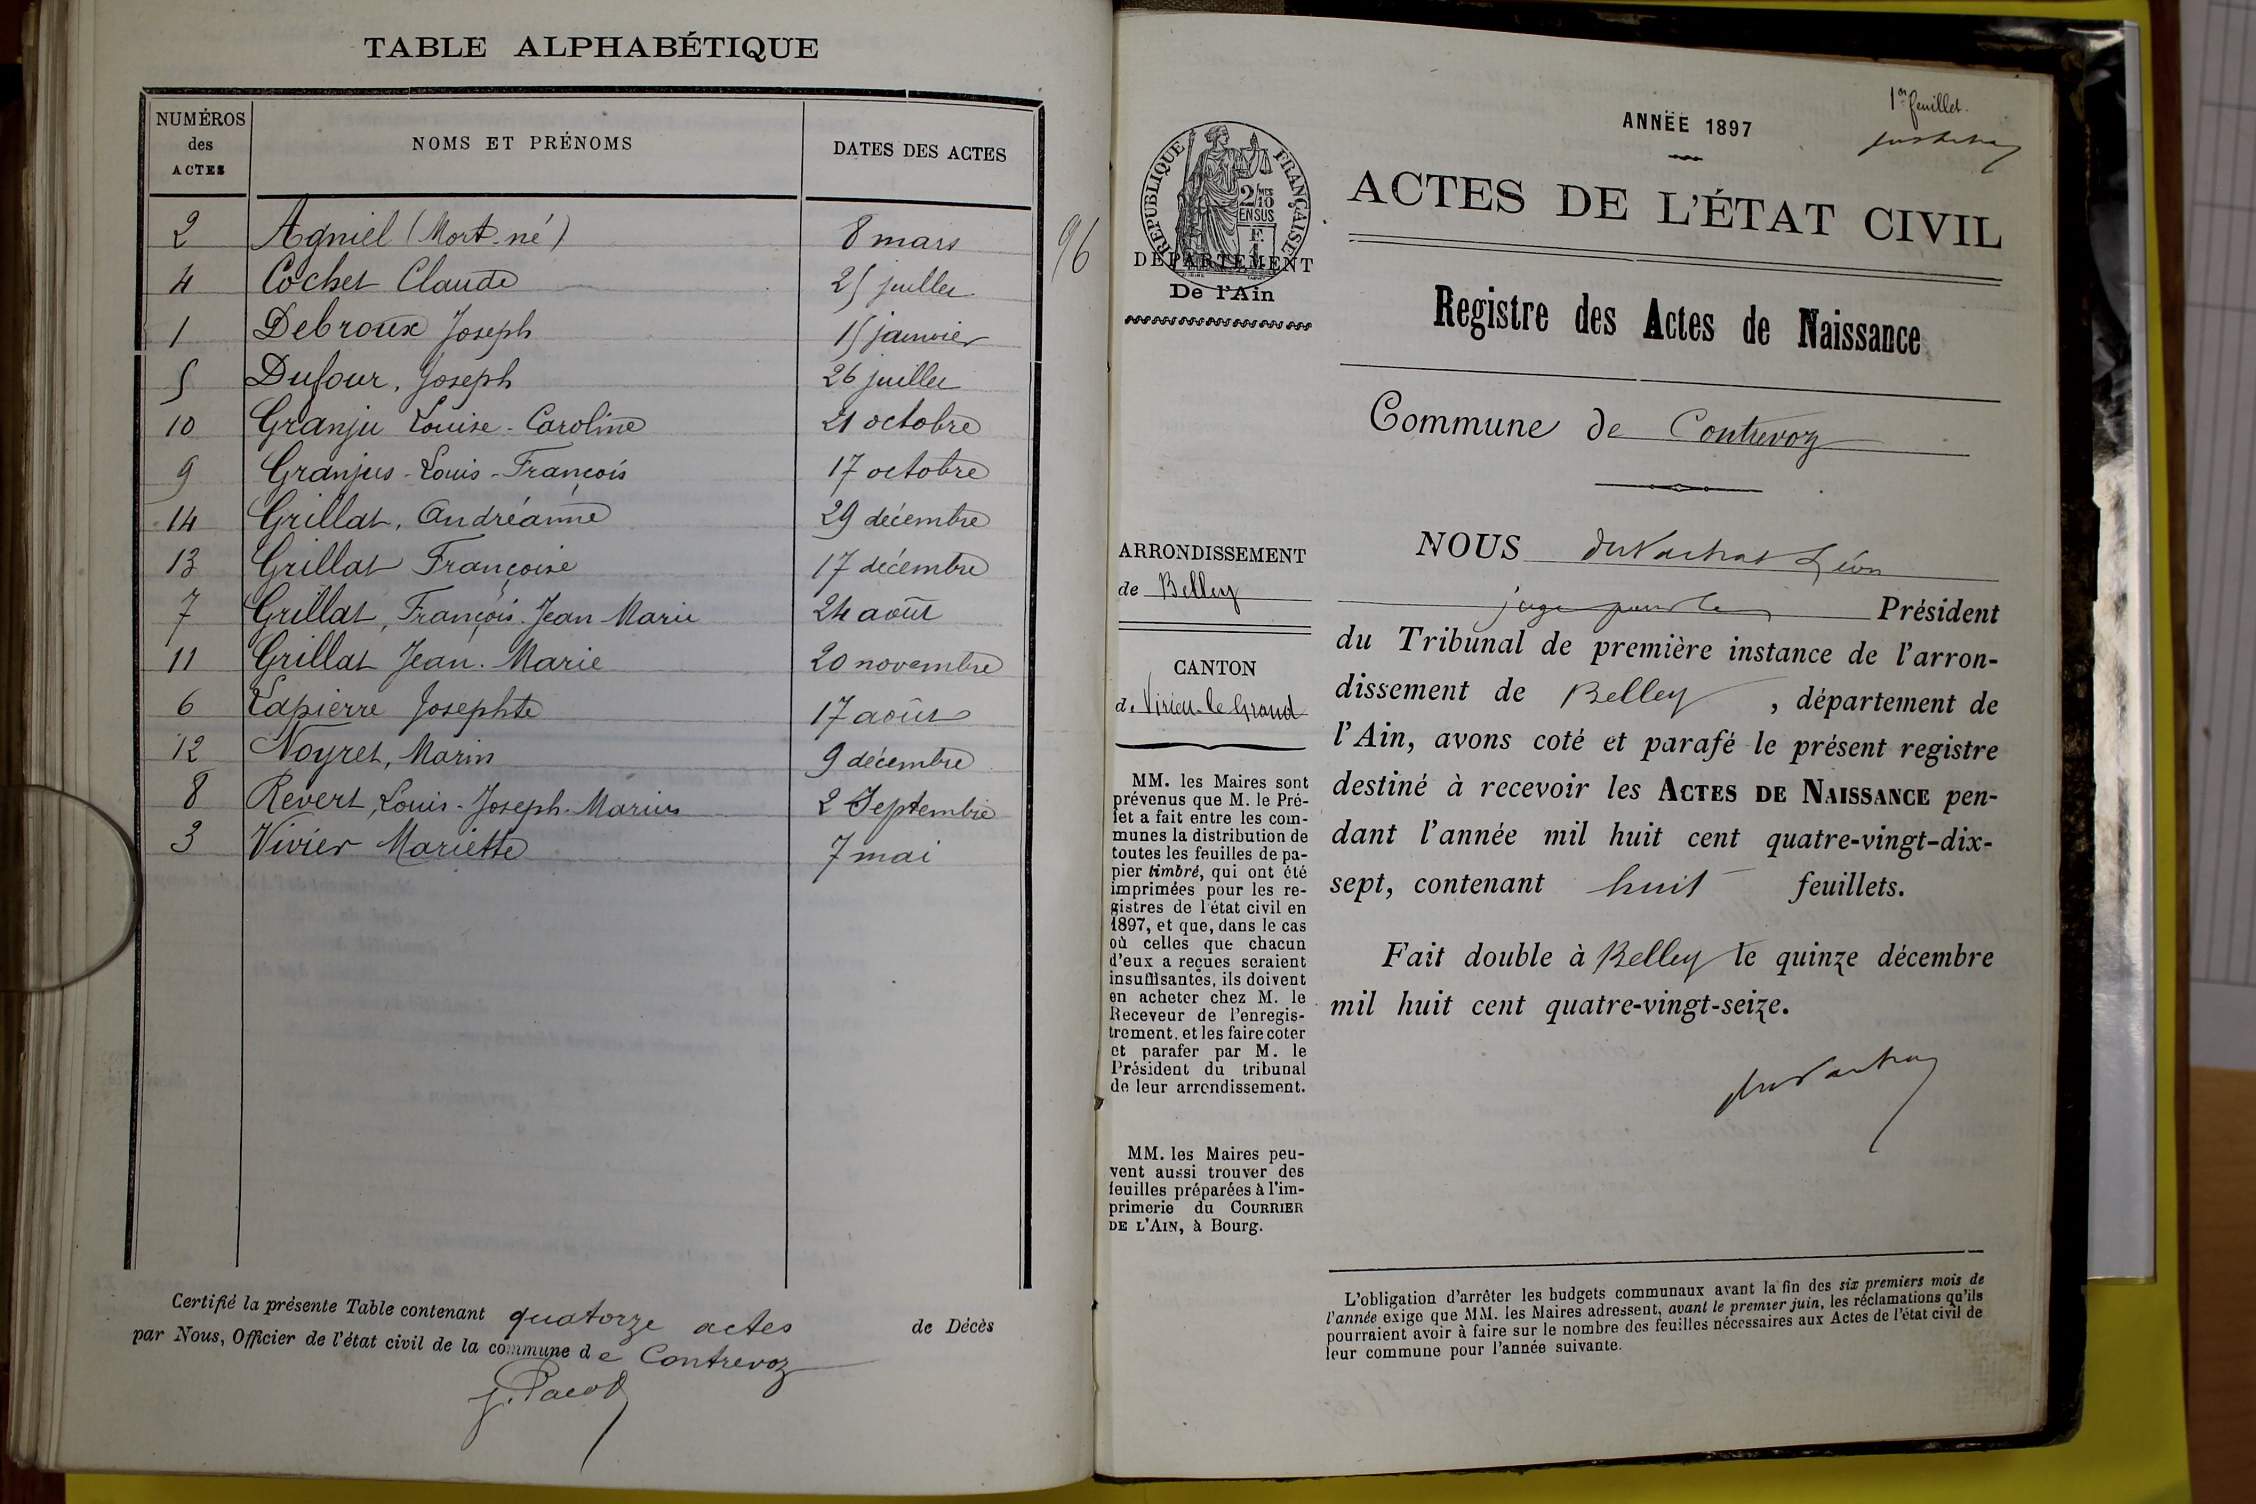 TABLE ALPHABÉTIQUE
NUMÉROS des ACTES NOMS ET PRÉNOMS DATES DES ACTES
2 Agniel (Mort-né) 8 mars
4 Cochet Claude 25 juillet
1 Debroux Joseph 15 janvier
5 Dufour, Joseph 26 juillet
10 Granju Louise-Caroline 21 octobre
9 Granjus-Louis-François 17 octobre
14 Grillat, Andréanne 29 décembre
13 Grillat Françoise 17 décembre
7 Grillat, François-Jean-Marie 24 août
11 Grillat Jean-Marie 20 novembre
6 Lapierre Josephte 17 août
12 Noyret, Marin 9 décembre
8 Revert, Louis-Joseph-Marius 2 Septembre
3 Vivier Mariette 7 mai
Certifié la présente Table contenant quatorze actes de Décès
par Nous, Officier de l'état civil de la commune de Contrevoz
J. Pacod
96
1er feuillet.
ANNÉE 1897
RÉPUBLIQUE FRANÇAISE
2/10 MES
EN SUS
F.
1
DÉPARTEMENT
De l'Ain
ACTES DE L'ÉTAT CIVIL
Registre des Actes de Naissance
Commune de Contrevoz
ARRONDISSEMENT
de Belley
CANTON
de Virieu-le-Grand
MM. les Maires sont
prévenus que M. le Pré-
fet a fait entre les com-
munes la distribution de
toutes les feuilles de pa-
pier timbré, qui ont été
imprimées pour les re-
gistres de l'état civil en
1897, et que, dans le cas
où celles que chacun
d'eux a reçues seraient
insuffisantes, ils doivent
en acheter chez M. le
Receveur de l'enregis-
trement, et les faire coter
et parafer par M. le
Président du tribunal
de leur arrondissement.
MM. les Maires peu-
vent aussi trouver des
feuilles préparées à l'im-
primerie du COURRIER
DE L'AIN, à Bourg.
NOUS Léon
juge pour le Président
du Tribunal de première instance de l'arron-
dissement de Belley, département de
l'Ain, avons coté et parafé le présent registre
destiné à recevoir les ACTES DE NAISSANCE pen-
dant l'année mil huit cent quatre-vingt-dix-
sept, contenant huit feuillets.
Fait double à Belley le quinze décembre
mil huit cent quatre-vingt-seize.
L'obligation d'arrêter les budgets communaux avant la fin des six premiers mois de
l'année exige que MM. les Maires adressent, avant le premier juin, les réclamations qu'ils
pourraient avoir à faire sur le nombre des feuilles nécessaires aux Actes de l'état civil de
leur commune pour l'année suivante.